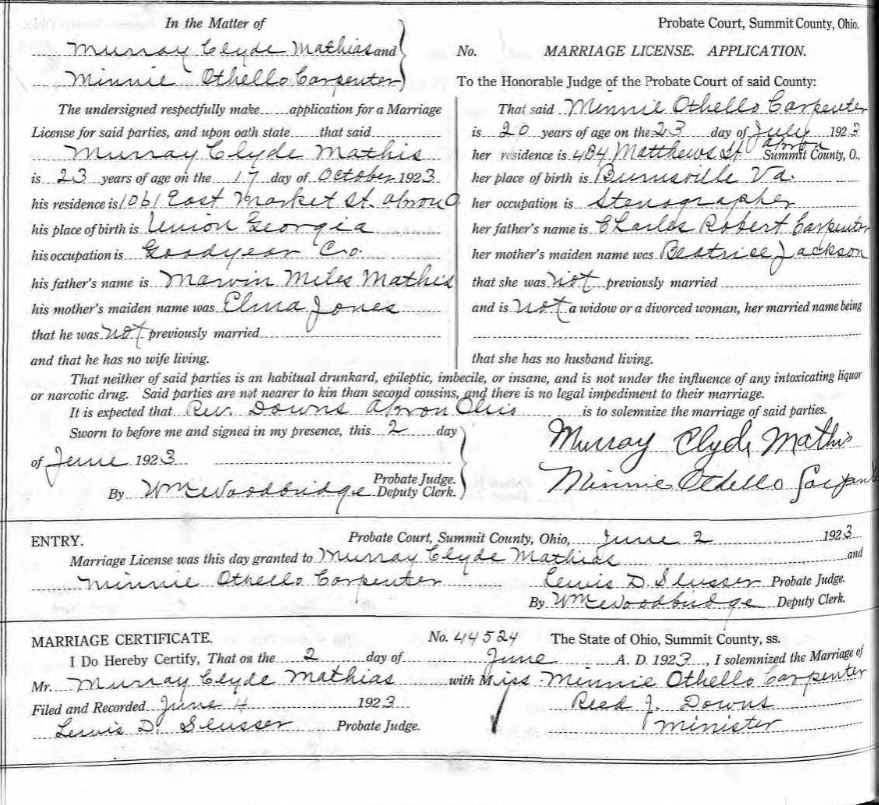 In the Matter of
Murray Clyde Mathias and
Minnie Othello Carpenter
The undersigned respectfully make application for a Marriage
License for said parties, and upon oath state that said
Murray Clyde Mathis
is 23 years of age on the 17 day of October 1923
his residence is 1061 East Market St. Akron O
his place of birth is Union Georgia
his occupation is Goodyear Co.
his father's name is Marvin Miles Mathis
his mother's maiden name was Elma Jones
that he was not previously married
and that he has no wife living.
Probate Court, Summit County, Ohio.
No. MARRIAGE LICENSE. APPLICATION.
To the Honorable Judge of the Probate Court of said County:
That said Minnie Othello Carpenter
is 20 years of age on the 23 day of July 1923
her residence is 484 Matthews St Akron Summit County, O.,
her place of birth is Burnsville Va.
her occupation is Stenographer
her father's name is Charles Robert Carpenter
her mother's maiden name was Beatrice Jackson
that she was not previously married
and is not a widow or a divorced woman, her married name being
that she has no husband living.
That neither of said parties is an habitual drunkard, epileptic, imbecile, or insane, and is not under the influence of any intoxicating liquor
or narcotic drug. Said parties are not nearer to kin than second cousins, and there is no legal impediment to their marriage.
It is expected that Rev. Downs Akron Ohio is to solemnize the marriage of said parties.
Sworn to before me and signed in my presence, this 2 day
of June 1923
Probate Judge.
By Wm E Woodbridge Deputy Clerk.
Murray Clyde Mathis
Minnie Othello Carpenter
ENTRY. Probate Court, Summit County, Ohio, June 2 1923
Marriage License was this day granted to Murray Clyde Mathias and
Minnie Othello Carpenter Lewis D. Slusser Probate Judge.
By Wm E Woodbridge Deputy Clerk.
MARRIAGE CERTIFICATE. No. 44524 The State of Ohio, Summit County, ss.
I Do Hereby Certify, That on the 2 day of June A. D. 1923, I solemnized the Marriage of
Mr. Murray Clyde Mathias with Miss Minnie Othello Carpenter
Filed and Recorded June 4 1923 Reed J. Downs
Lewis D. Slusser Probate Judge. Minister